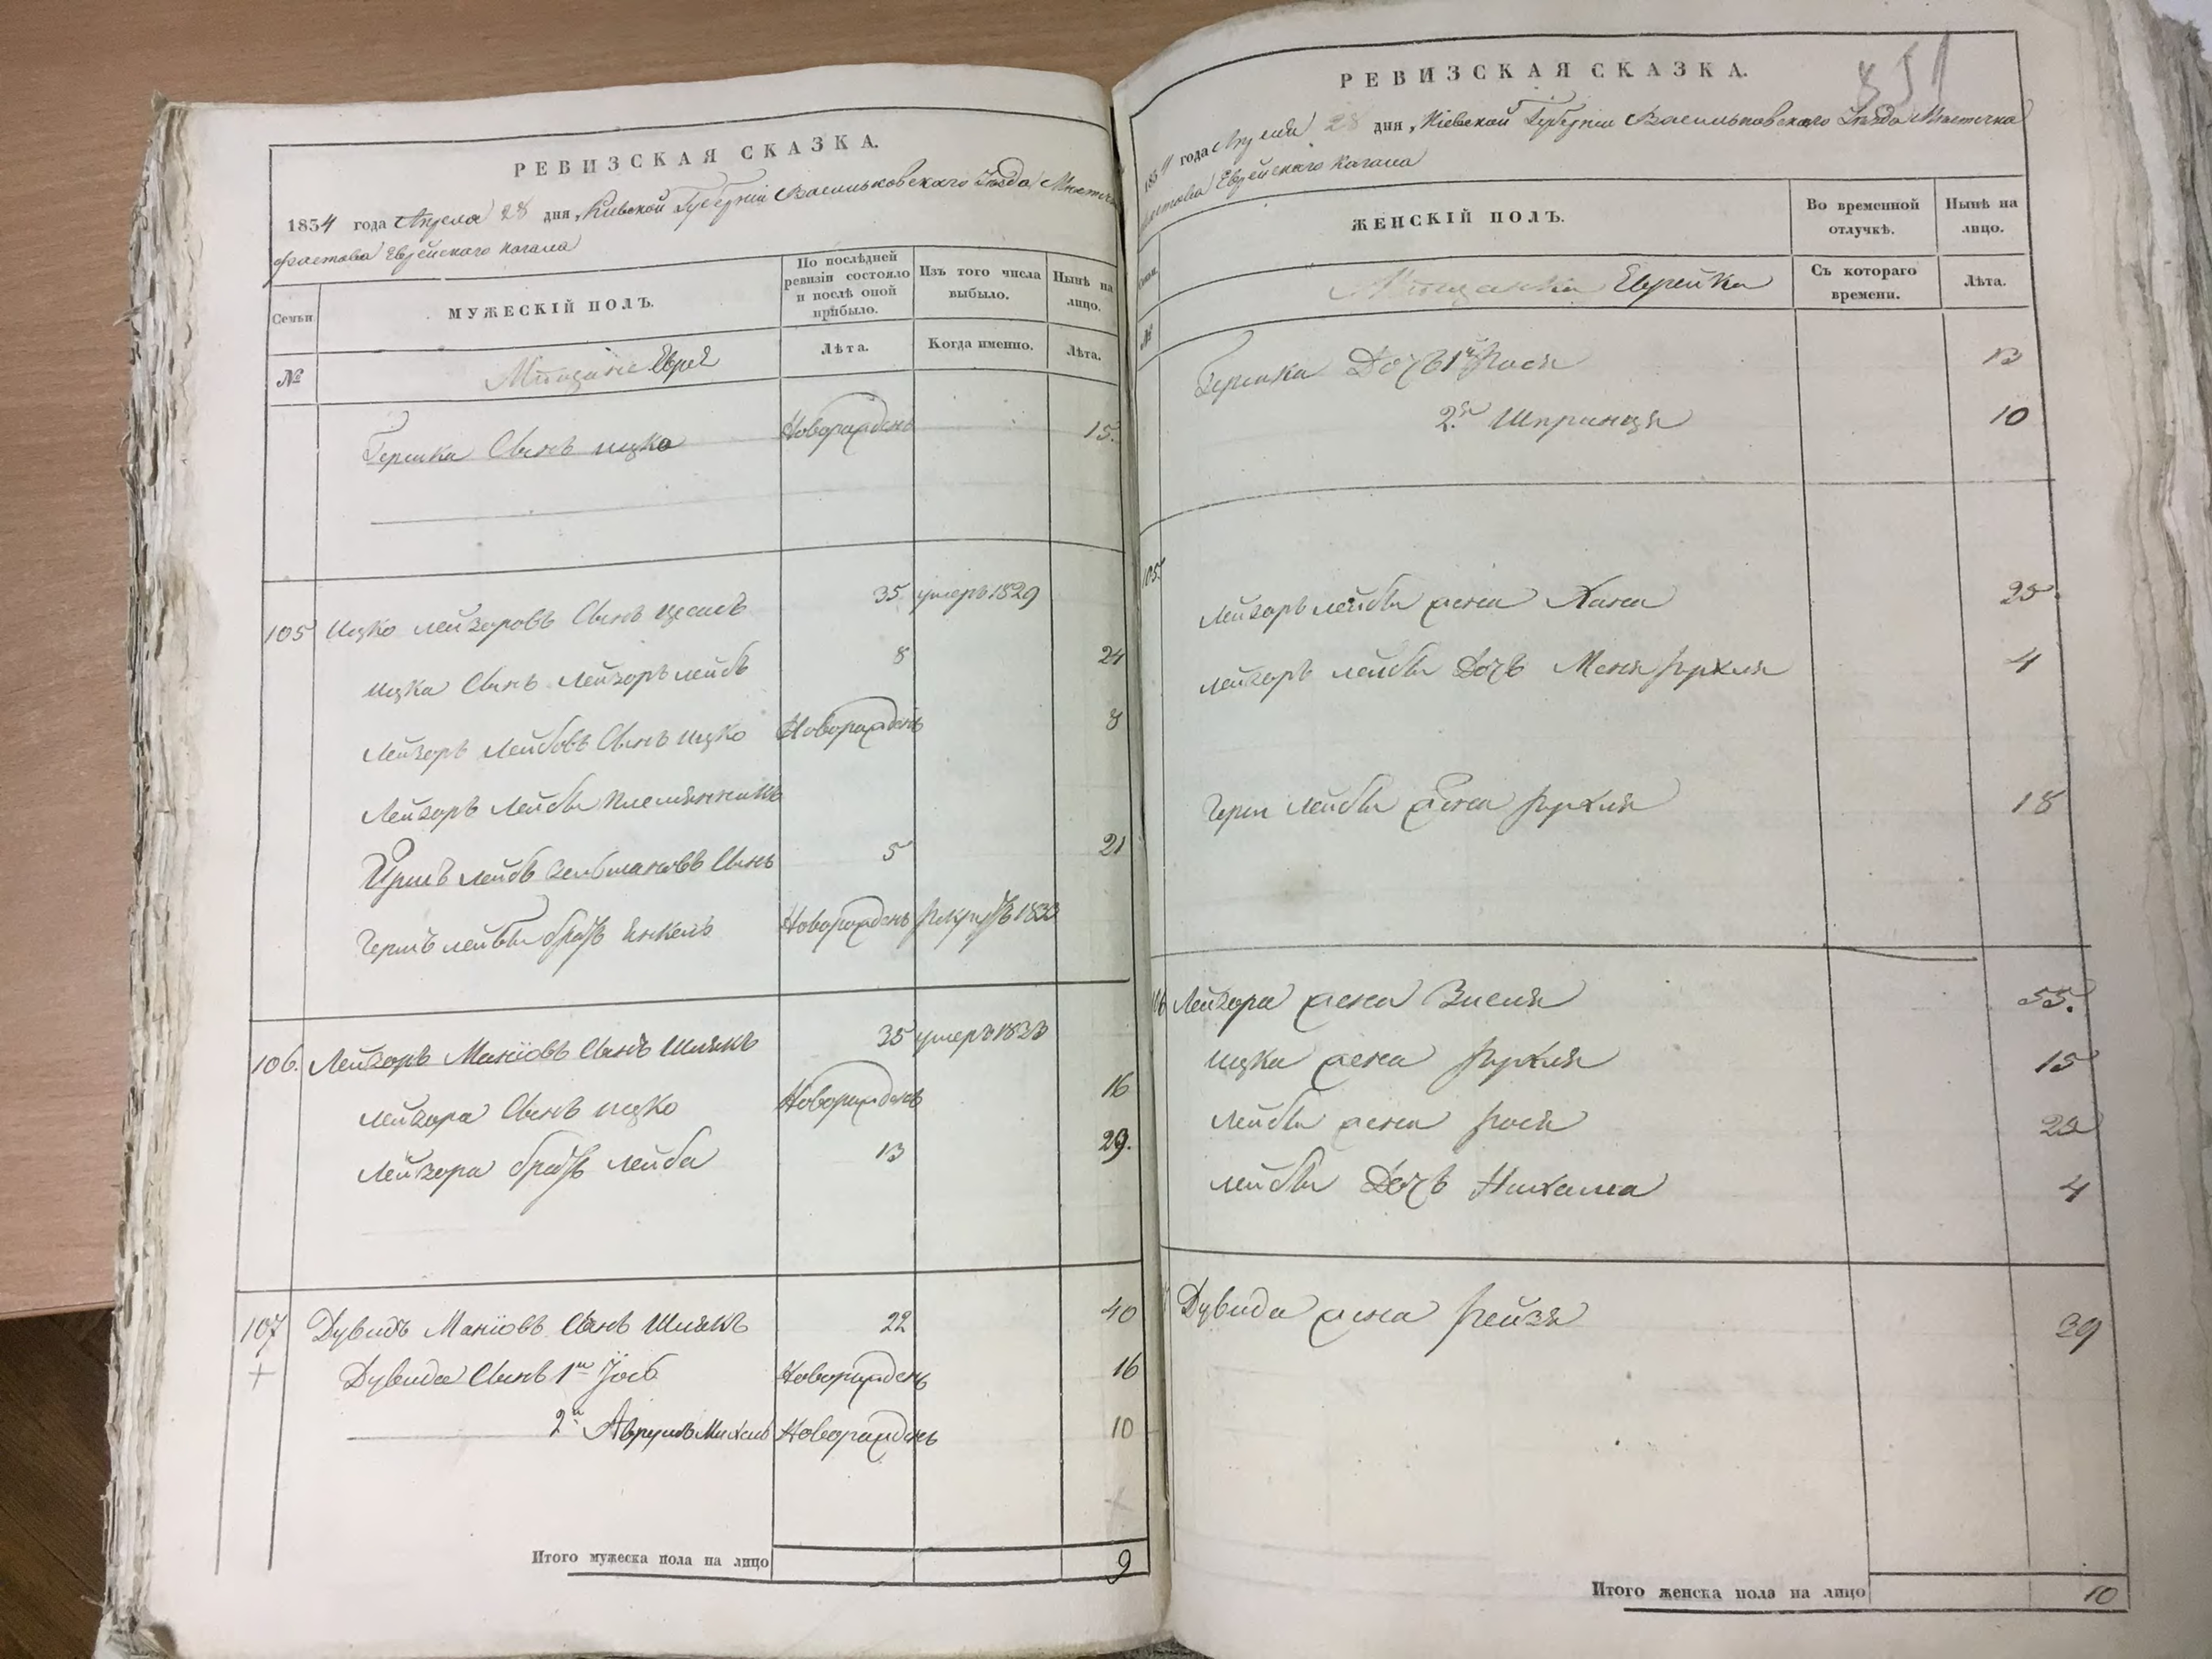 РЕВИЗСКАЯ СКАЗКА.
1834 года Апреля 28 дня, Киевской Губерніи Васильковскаго Уезда Местеч
Фастова Еврейского кагала
Семьи
МУЖЕСКІЙ ПОЛЪ.
По послѣдней ревизіи состояло и послѣ оной прибыло.
Изъ того числа выбыло.
Нынѣ на лицо.
№
Мещане Евреи
Лѣта.
Когда именно.
Лѣта.
Гершка Сынъ ицко Новорожденъ 15.
105 Ицко лейзоровъ Сынъ 35 умеръ 1829
ицка Сынъ лейзоръ лейбъ 8 24
Лейзоръ Лейбовъ Сынъ ицко Новорожденъ 8
Лейзоръ Лейбы племянникъ
Гершъ лейбъ Зельмановъ Сынъ 5 21
Гершъ лейбы братъ Янкель Новорожденъ рекрутъ 1833
106. Лейзоръ Маніовъ Сынъ Шлякъ 35 умеръ 1823
лейзора Сынъ ицко Новорожденъ 16
Лейзора братъ лейба 13 29.
107 Дувидъ Маніовъ Сынъ Шлякъ 22 40
+ Дувида Сынъ 1й Іосъ Новорожденъ 16
2й Аврумъ Михель Новорожденъ 10
Итого мужеска пола на лицо 9
851
РЕВИЗСКАЯ СКАЗКА.
1834 года Апреля 28 дня, Кіевской Губерніи Васильковскаго Уезда Местечка
Фастова Еврейскаго Кагала
Семьи
ЖЕНСКІЙ ПОЛЪ.
Во временной отлучкѣ.
Нынѣ на лицо.
№
Мещанки Еврейки
Съ котораго времени.
Лѣта.
Гершка Дочь 1я рося 13
2я Шпринця 10
105. Лейзоръ лейбы жена Хана 25.
лейзоръ лейбы Дочъ Меня рухля 4
Герш лейбы жена рухля 18
106 Лейзора жена Висля 55.
ицка жена рухля 15
лейбы жена рося 22
лейбы Дочъ Нихама 4
Дувида жена рейзя 39
Итого женска пола на лицо 10